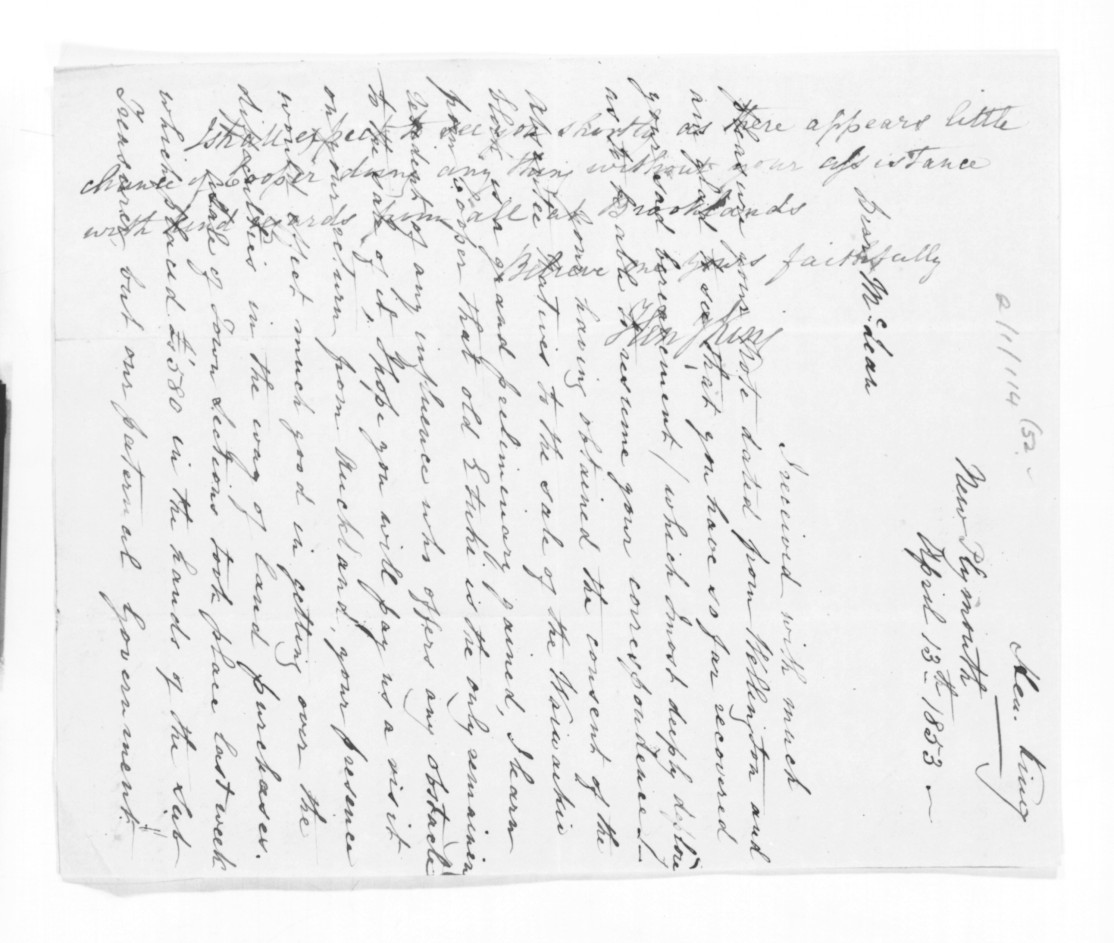 Hen. King
New Plymouth
April 13th 1853
a/1/114 (52
Dear Mc.Lean
I received with much
pleasure your Note dated from Wellington and
am glad to see that you have so far recovered
your sad bereavement (which I most deeply deplore)
as to be able to resume your correspondence.
Your having obtained the consent of the
Native natives to the sale of the Wairarapa
block is a grand preliminary gained, I learn
from Cooper that old Etuke is the only remaining
leader of any influence who offers any obstacle
to the sale of it, I hope you will pay us a visit
on your return from Auckland, your presence
would effect much good in getting over the
difficulties in the way of land purchases.
A sale of Town Sections took place last week
which placed £580 in the hands of the Sub
Treasurer but our paternal Government
I shall expect to see you shortly as there appears little
chance of Cooper doing any thing without your assistance
with kind regards from all at Brooklands
Believe me yours faithfully
Hen King